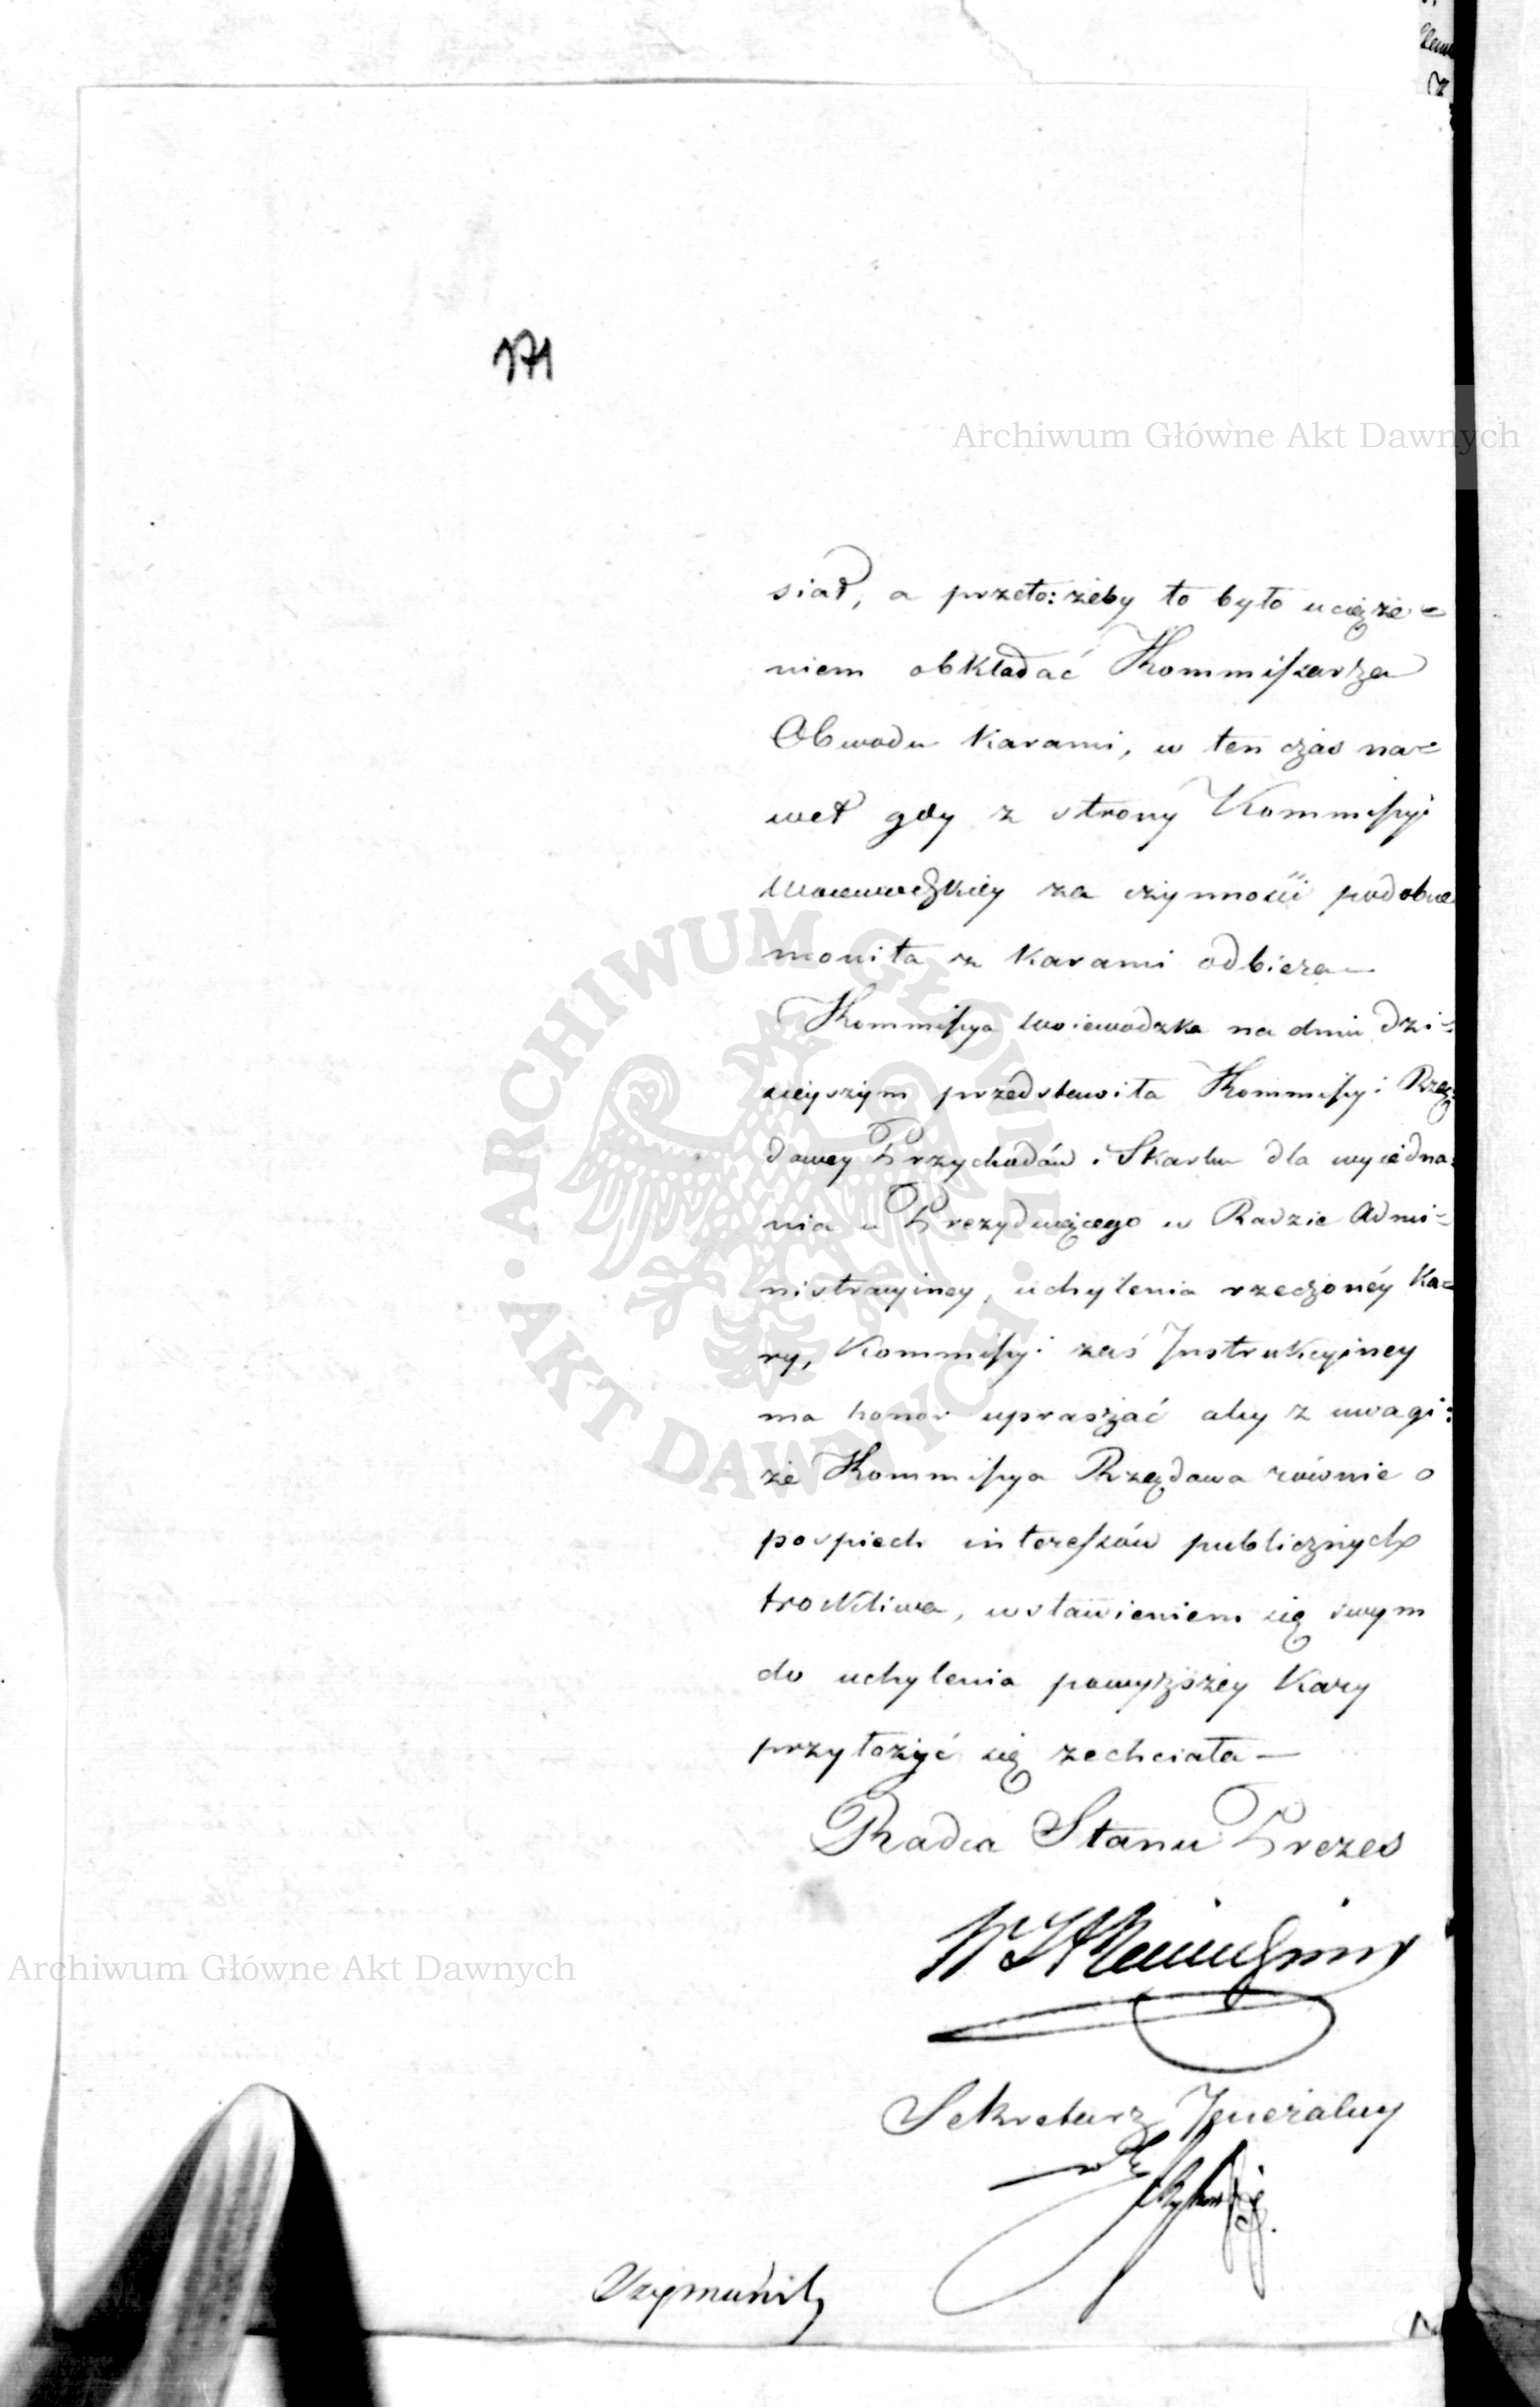 171
Archiwum Główne Akt Dawnych
siał, a przeto: żeby to było uciąże=
niem obkładać Kommissarza
Obwodu karami, w ten czas na=
wet gdy z strony Kommissyi
Woiewodzkiey za czynności podobne
monita z karami odbiera—
Kommissya Woiewodzka na dniu dzi=
sieyszym przedstawiła Kommissyi Rzą=
dowey Przychodów i Skarbu dla wyiedna=
nia u Prezyduiącego w Radzie Admi=
nistracyiney, uchylenia rzeczonéy ka=
ry, Kommissyi zaś Instrukcyiney
ma honor upraszać aby z uwagi:
że Kommissya Rządowa równie o
pospiech interessów publicznych
troskliwa, wstawieniem się swym
do uchylenia powyższey kary
przyłożyć się zechciała—
Radca Stanu Prezes
Archiwum Główne Akt Dawnych
Sekretarz Jeneralny
ARCHIWUM GŁÓWNE AKT DAWNYCH